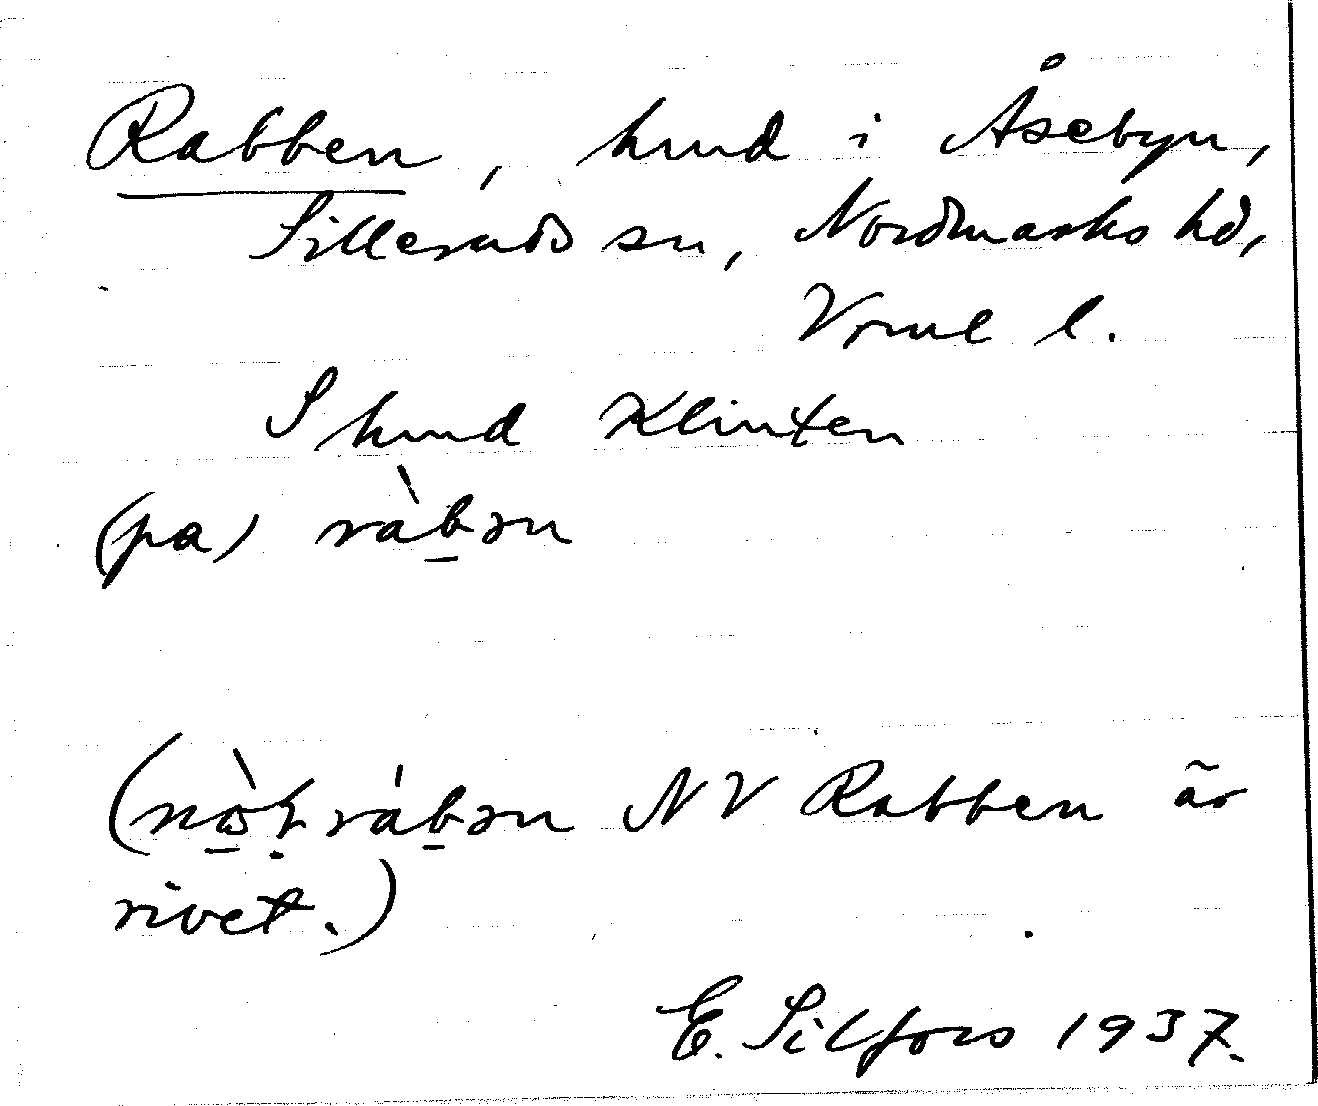 Rabben, hmd i Åsebyn,
Silleruds sn, Nordmarks hd,
Vrml l.
S hmd Klinten
(pa) ràbən
ràbən NV Rabben är
rivet.)
E. Silfors 1937.